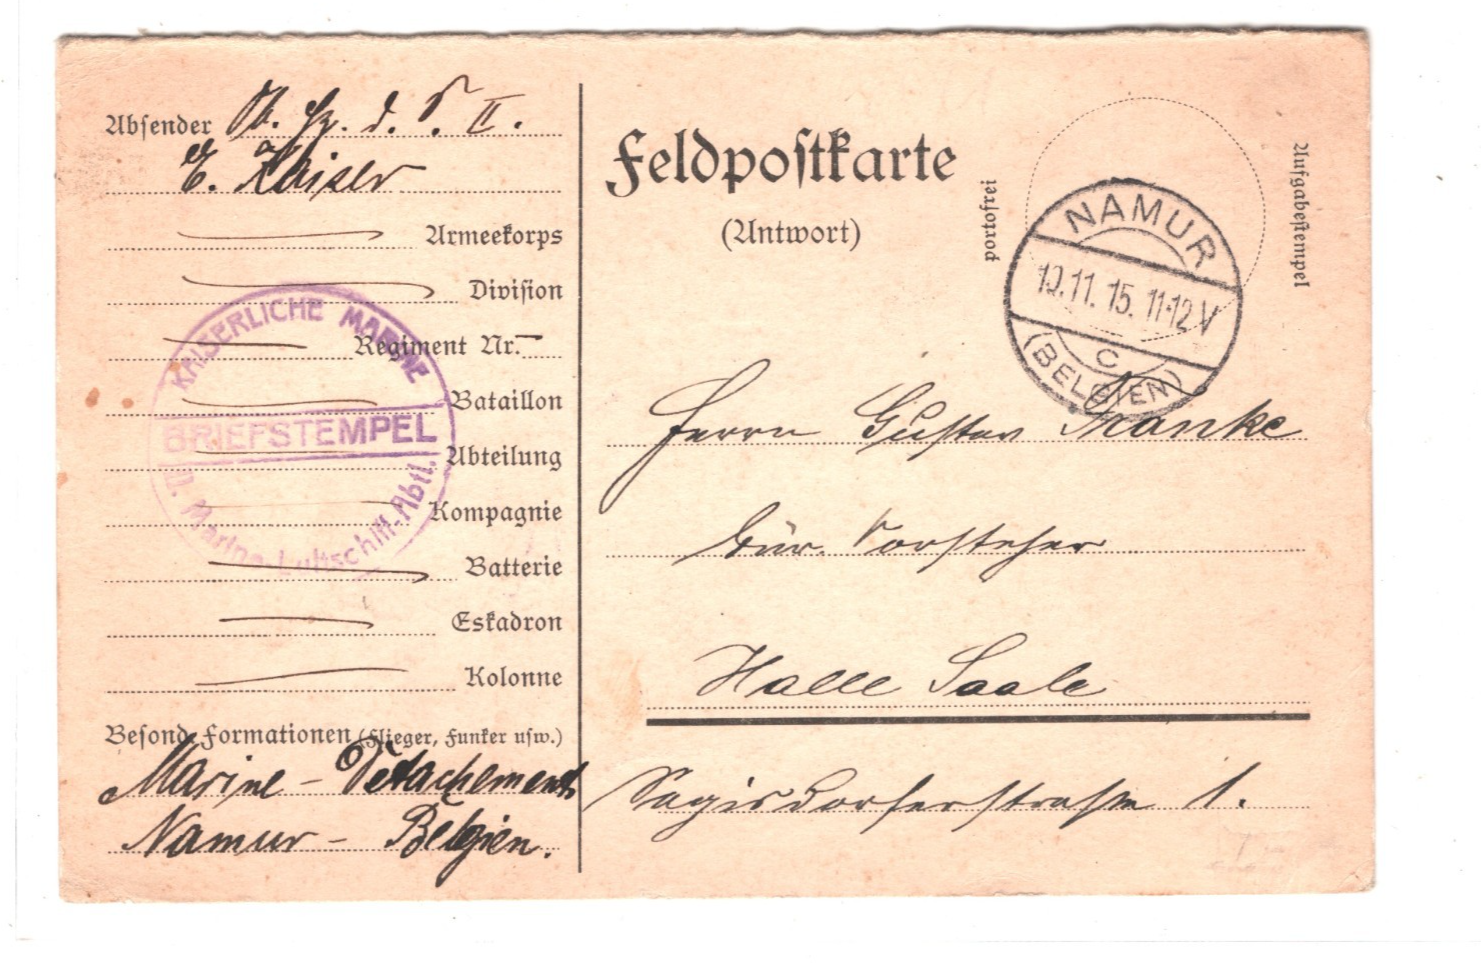 Absender Ob. Hz. d. S. II.
E. Kaiser
Armeekorps
Division
Regiment Nr.
Bataillon
Abteilung
Kompagnie
Batterie
Eskadron
Kolonne
Besond. Formationen (Flieger, Funker usw.)
Marine - Detachement
Namur - Belgien.
KAISERLICHE MARINE
BRIEFSTEMPEL
Marine-Luftschiff-Abtl.
Feldpostkarte
(Antwort)
portofrei
Aufgabestempel
NAMUR
11. 15. 11-12 V
C
(BELGIEN)
Herrn Gustav Franke
Bür. Vorsteher
Halle Saale
Sagisdorferstrasse 1.